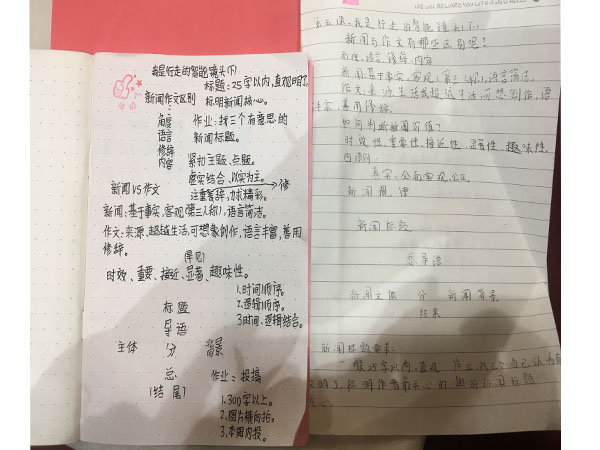 我是行走的智能镜头(下)
标题:25字以内,直观明了,
新闻作文区别
标明新闻核心。
角度
语言
修辞
内容
作业:找三个有意思的
新闻标题。
紧扣主题、点题。
虚实结合,以实为主。
注重修辞,力求精彩。
修
新闻VS作文
新闻:基于事实、客观(第三人称),语言简洁。
作文:来源、超越生活,可想象创作,语言丰富,善用
修辞。
时效、重要、接近、显著、趣味性。
1.时间顺序。
2.逻辑顺序。
3.时间、逻辑结合。
标题
导语
主体 分 背景
总
(结尾)
作业:投搞
1.300字以上。
2.图片横向拍。
3.本周内投。
第五课:我是行走的智能镜头(下)
新闻与作文有哪些区别呢?
角度、语言、修辞、内容
新闻:基于事实、客观(第三人称),语言简洁。
作文:来源生活或超越生活,可想创作,语
言丰富,善用修辞。
如何判断新闻价值?
时效性、重要性、接近性、显著性、趣味性。
四原则:
真实、全面客观、公正
新闻规律
新闻标题
总导语
新闻主体 分 新闻背景
结尾
新闻标题要求:
一般25字以内,直观
作业:找三个自己认为有
趣的新闻标题